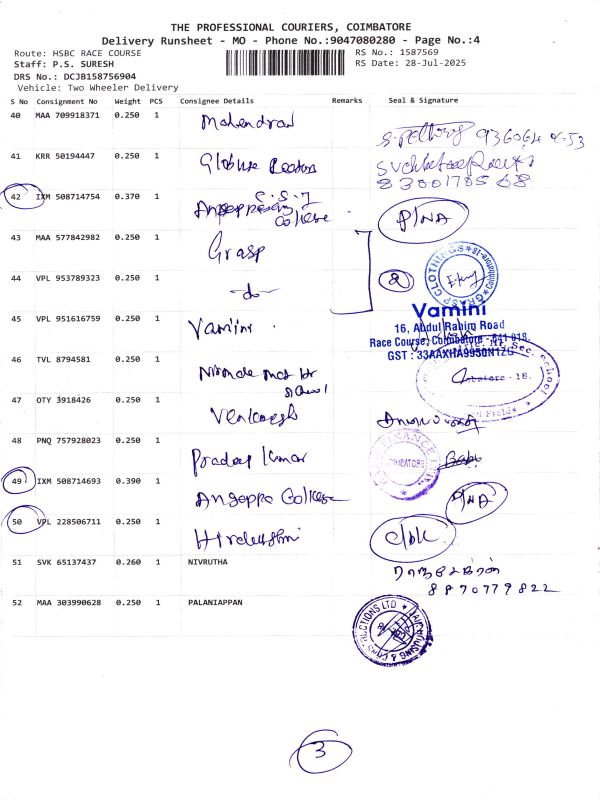 THE PROFESSIONAL COURIERS, COIMBATORE
Delivery Runsheet - MO - Phone No.:9047080280 - Page No.:4
Route: HSBC RACE COURSE
RS No.: 1587569
Staff: P.S. SURESH
RS Date: 28-Jul-2025
DRS No.: DCJB158756904
Vehicle: Two Wheeler Delivery
S No Consignment No Weight PCS Consignee Details Remarks Seal & Signature
40 MAA 709918371 0.250 1 Mahendran
41 KRR 50194447 0.250 1
83001785 68
42 IXM 508714754 0.370 1 College P/NA
43 MAA 577842982 0.250 1 Grasp
GRASP CLOTHINGS
44 VPL 953789323 0.250 1 -do- 2
45 VPL 951616759 0.250 1 Vamini
Vamini
16, Abdul Rahim Road
Race Course, Coimbatore - 641 018.
GST : 33AAXHA9950N1ZG
46 TVL 8794581 0.250 1
Hr Sec. School
47 OTY 3918426 0.250 1 Venkatesh
48 PNQ 757928023 0.250 1 Pradeep Kumar Babu
49 IXM 508714693 0.390 1 Angappa College P/NA
50 VPL 228506711 0.250 1
51 SVK 65137437 0.260 1 NIVRUTHA
8870779822
52 MAA 303990628 0.250 1 PALANIAPPAN
3